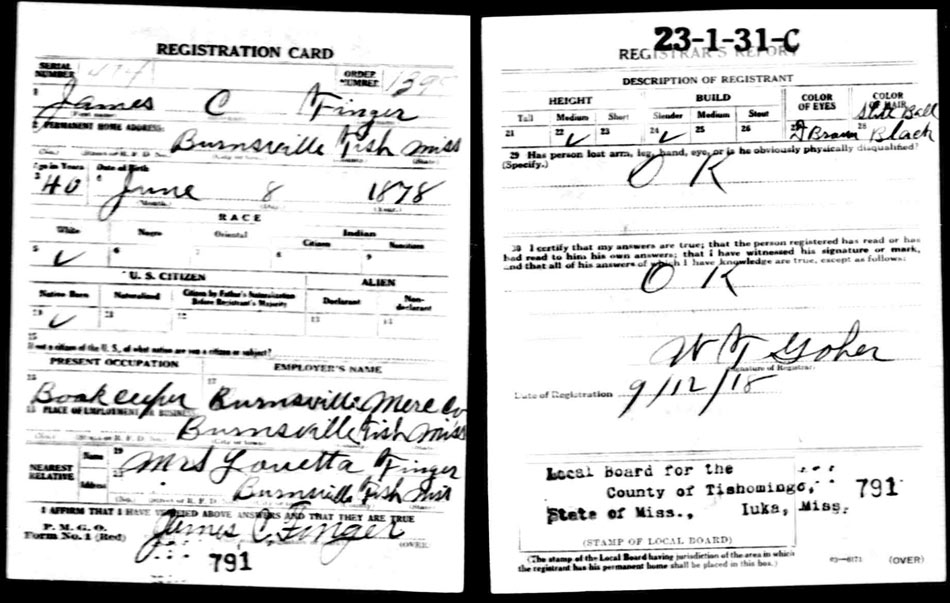 REGISTRATION CARD
SERIAL NUMBER
ORDER NUMBER 139
1 James C Finger
2 PERMANENT HOME ADDRESS:
Burnsville Tish Miss
Age in Years Date of Birth
3 40 4 June 8 1878
(Month.) (Day.) (Year.)
RACE
White Negro Oriental Indian
Citizen Noncitizen
5 ✓ 6 7 8 9
U. S. CITIZEN ALIEN
Native Born Naturalized Citizen by Father's Naturalization Before Registrant's Majority Declarant Non-declarant
10 ✓ 11 12 13 14
15
If not a citizen of the U. S., of what nation are you a citizen or subject?
PRESENT OCCUPATION EMPLOYER'S NAME
16 Bookkeeper 17 Burnsville Merc Co
18 PLACE OF EMPLOYMENT OR BUSINESS
Burnsville Tish Miss
NEAREST RELATIVE
Name 19 Mrs Louetta Finger
Address 20 Burnsville Tish Miss
I AFFIRM THAT I HAVE VERIFIED ABOVE ANSWERS AND THAT THEY ARE TRUE
P. M. G. O.
Form No. 1 (Red)
James C Finger
(OVER)
791
23-1-31-C
REGISTRAR'S REPORT
DESCRIPTION OF REGISTRANT
HEIGHT BUILD COLOR OF EYES COLOR OF HAIR
Tall Medium Short Slender Medium Stout
21 22 ✓ 23 24 ✓ 25 26 27 Brown 28 Black
29 Has person lost arm, leg, hand, eye, or is he obviously physically disqualified?
(Specify.)
O K
30 I certify that my answers are true; that the person registered has read or has
had read to him his own answers; that I have witnessed his signature or mark,
and that all of his answers of which I have knowledge are true, except as follows:
O K
W T Goher
(Signature of Registrar)
Date of Registration 9/12/18
Local Board for the
County of Tishomingo,
State of Miss., Iuka, Miss.
791
(STAMP OF LOCAL BOARD)
(The stamp of the Local Board having jurisdiction of the area in which
the registrant has his permanent home shall be placed in this box.)
(OVER)